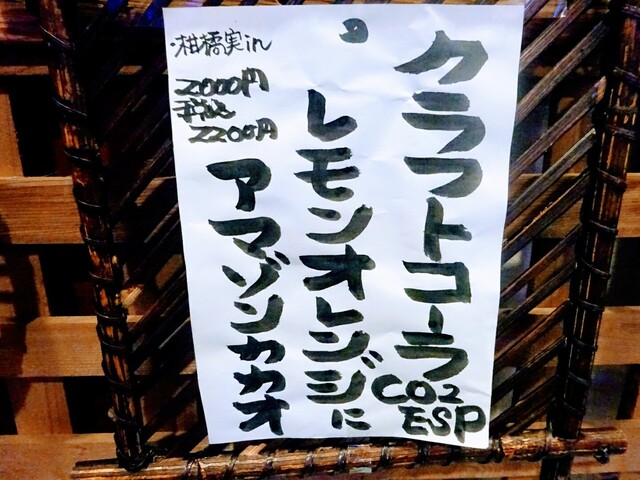 クラフトコーラ
CO2
ESP
レモンオレンジに
アマゾンカカオ
・柑橘実in
2000円
税込
2200円